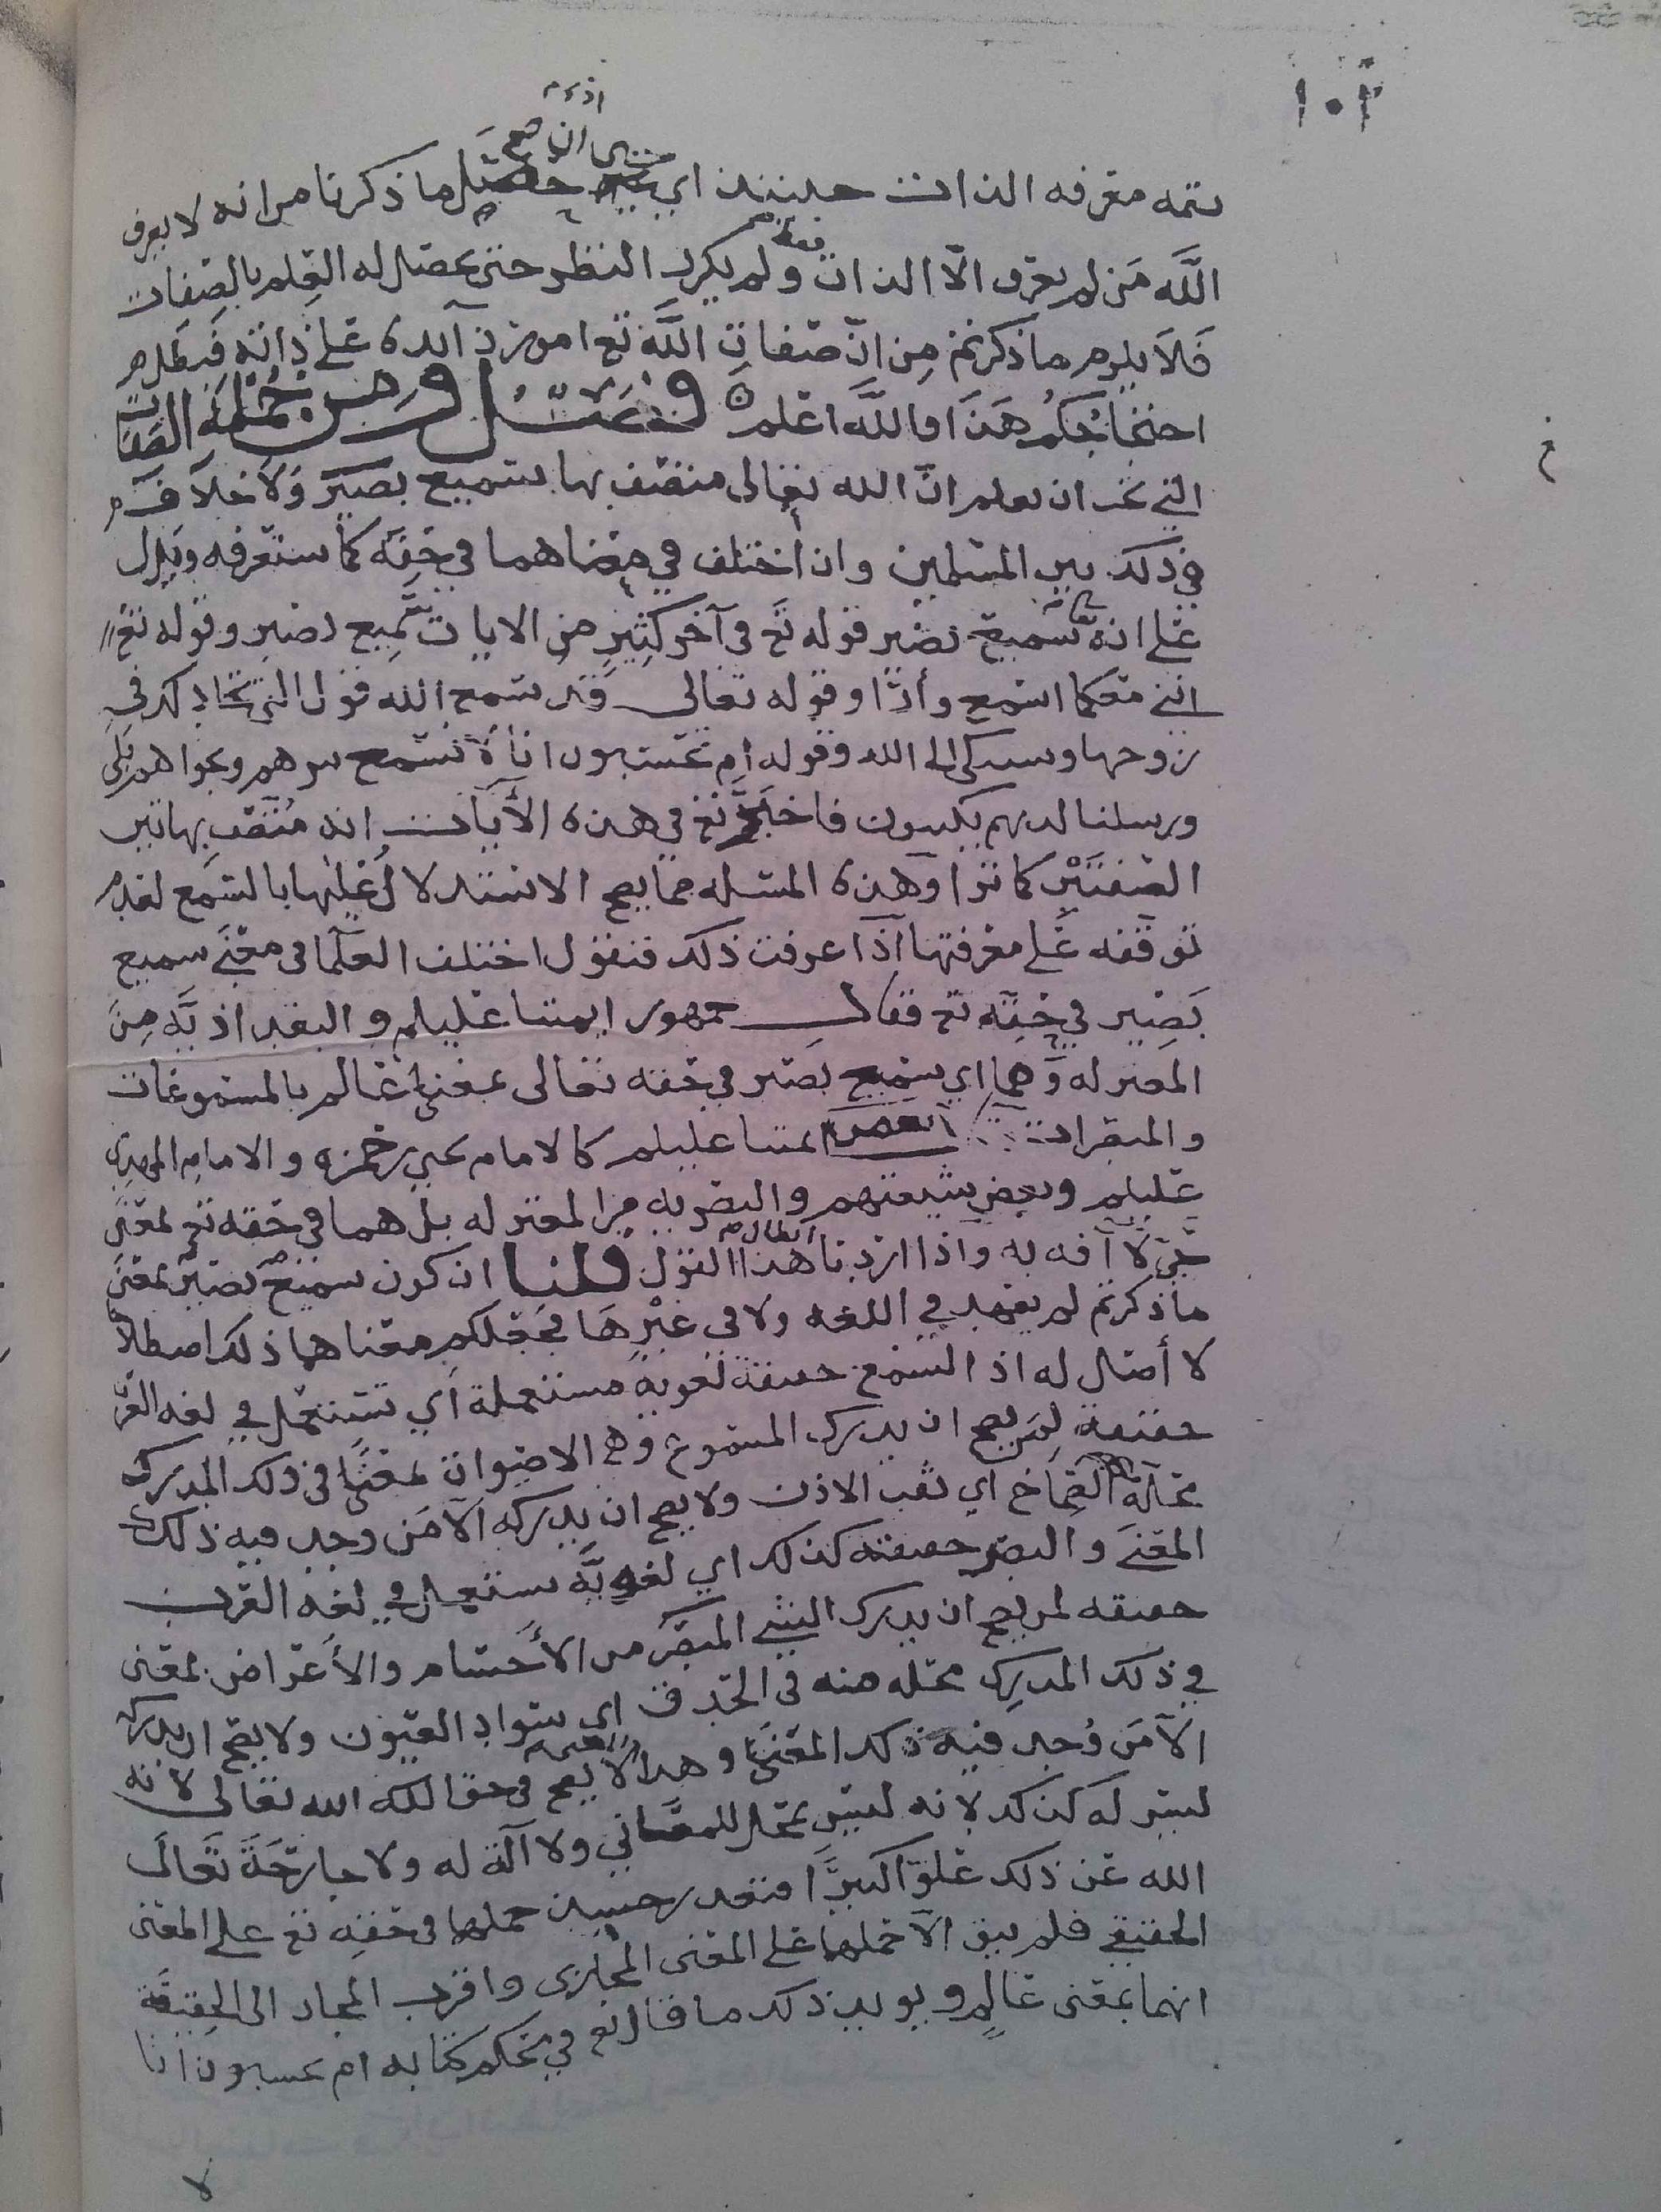 ١٠٢
معرفه الذات حينئذ اي ما ذكرنا من انه لا يعرف
الله من لم يعرف الا الذات ولم يكرر النظر حتى يحصل له العلم بالصفات
فلا يلزم ما ذكرتم من ان صفات الله تع امور زايده على ذاته فبطل
احتجاجكم هذا والله اعلم فصل ومن جمله الصفات
التي يجب ان يعلم ان الله تعالى متصف بها سميع بصير ولا خلاف
في ذلك بين المسلمين وان اختلف في معناهما في حقه كما ستعرفه ويدل
على انه سميع بصير قوله تع في آخر كثير من الايات سميع بصير وقوله تع
انني معكما اسمع وأرا وقوله تعالى قد سمع الله قول التي تجادلك في
زوجها وتستكى الى الله وقوله ام يحسبون انا لا نسمع سرهم ونجواهم بلى
ورسلنا لديهم يكتبون فاخبر تع في هذه الأيات انه متصف بهاتين
الصفتين كما ترا وهذه المسئله مما يصح الاستدلال عليها بالسمع لعدم
توقفه على معرفتها اذا عرفت ذلك فنقول اختلف العلما في معنى سميع
بصير في حقه تع فقال جمهور ايمتنا عليلم والبغداذيه من
المعتزله وهما اي سميع بصير في حقه تعالى بمعنى عالم بالمسموعات
والمبصرات بعض ائمتنا عليلم كالامام يحيى بن حمزه والامام المهدي
عليلم وبعض شيعتهم والبصريه من المعتزله بل هما في حقه تع بمعنى
حي لا آفه به واذا اردنا ابطال هذا القول قلنا ان كون سميع بصير بمعنى
ما ذكرتم لم يعهد في اللغه ولا في غيرها فجعلكم معناهما ذلك اصطلاحا
لا أصل له اذ السمع حقيقة لغوية مستعملة أي تستعمل في لغه العرب
حقيقة لمن يصح ان يدرك المسموع وهي الاصوات بمعنى في ذلك المدرك
محله الصماخ اي ثقب الاذن ولا يصح ان يدركه الا من وجد فيه ذلك
المعنى والبصر حقيقته كذلك اي لغويه يستعمل في لغه العرب
حقيقه لمن يصح ان يدرك الشي المبصر من الأجسام والأعراض بمعنى
في ذلك المدرك محله منه في الحدق اي سواد العيون ولا يصح ان يدرك
الا من وُجد فيه ذلك المعنى وهذا لا يصح في حق الله تعالى لانه
ليس له كذلك لانه ليس بمحل للمعاني ولا آلة له ولا جارحة تعالى
الله عن ذلك علوا كبيرا فتعذر حينئذ حملهما في حقه تع على المعنى
الحقيقي فلم يبق الا حملهما على المعنى المجازي واقرب المجاز الى الحقيقة
انهما بمعنى عالم ويويد ذلك ما قال تع في محكم كتابه ام يحسبون انا
لا